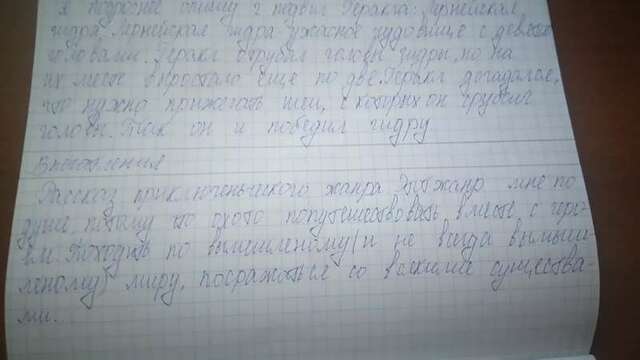 Я подробнее опишу 2 подвиг Геракла: Лернейская
гидра. Лернейская гидра ужасное чудовище с девятью
головами. Геракл отрубал головы гидры, но на
их месте вырастало ещё по две. Геракл догадался,
что нужно прижигать шеи, с которых он срубил
головы. Так он и победил гидру
Впечатления
Рассказ приключенческого жанра. Этот жанр мне по
душе, потому что охота попутешествовать вместе с геро-
ем. Походить по вымышленому (и не всегда вымыш-
леному) миру, посражаться со всякими существа-
ми.